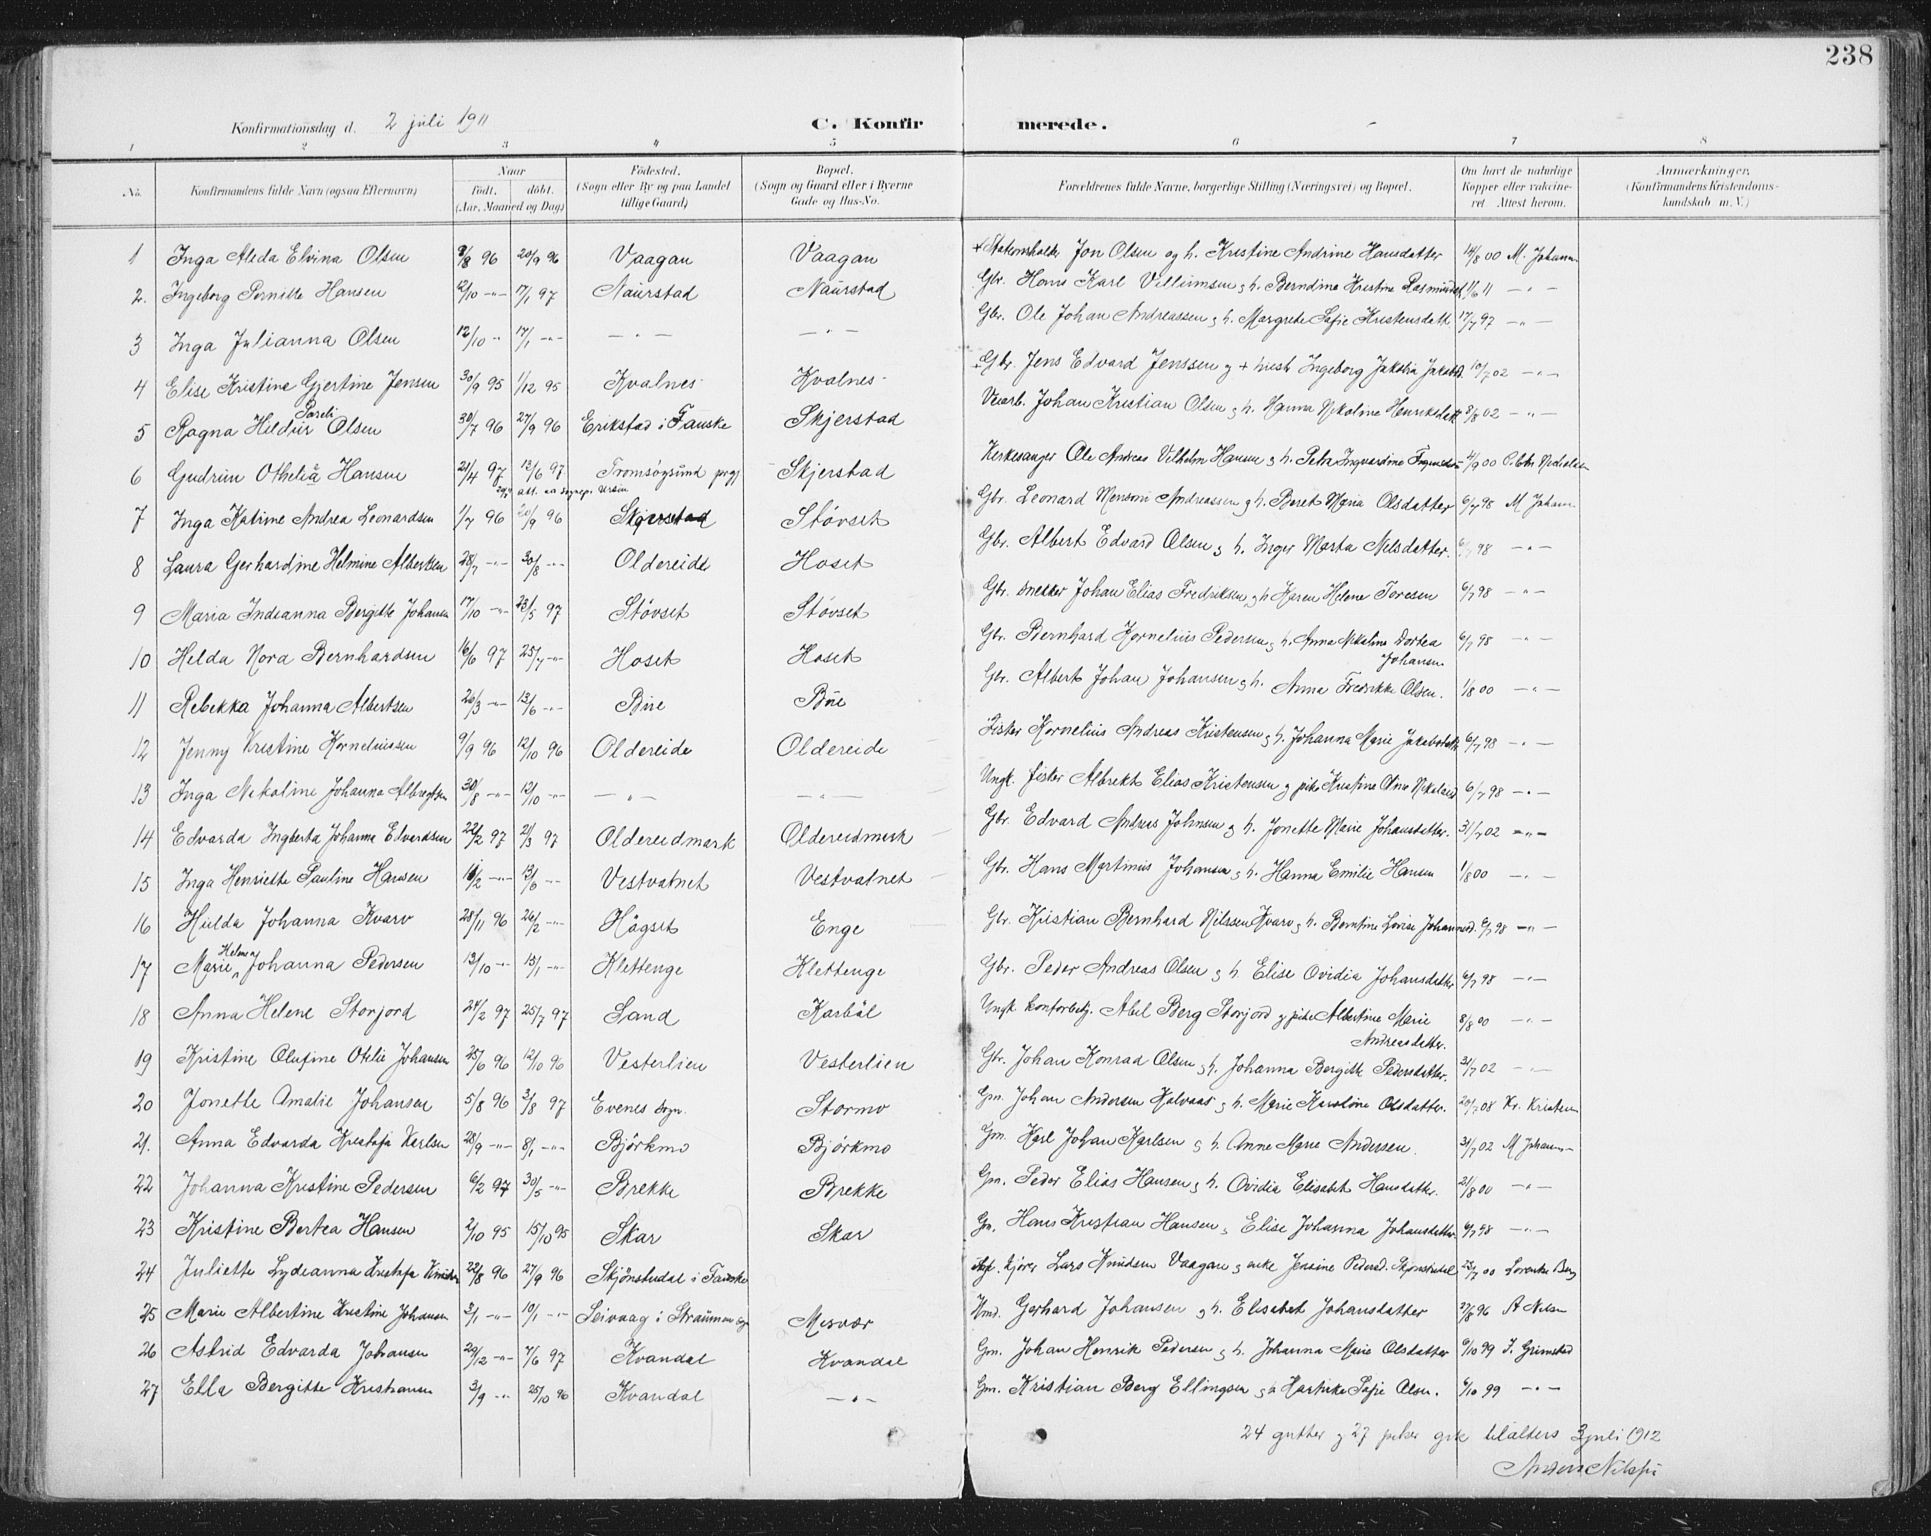 238
Konfirmationsdag d. 2 juli 1911
C. Konfirmerede.
1 2 3 4 5 6 7 8
No. Konfirmandens fulde Navn (ogsaa Efternavn) Naar födt. döbt. (Aar, Maaned og Dag) Födested. (Sogn eller By og paa Landet tillige Gaard) Bopæl. (Sogn og Gaard eller i Byerne Gade og Hus-No. Forældrenes fulde Navne, borgerlige Stilling (Næringsvei) og Bopæl. Om havt de naturlige Kopper eller vakcineret Attest herom. Anmærkninger, (Konfirmandens Kristendomskundskab m. V.)
1 Inga Alida Elvina Olsen 9/8 96 20/9 96 Vaagan Vaagan + Jon Olsen og h. Kristine Andrine Hansdatter 14/8 00 M. Johann
2. Ingeborg Pernitte Hansen 9/10 -"- 17/1 97 Naurstad Naurstad Gbr. Hans Karl Villumsen & h. Berndine Kristine Rasmusdat 1/6 11 -"-
3 Inga Julianna Olsen 12/10 " 17/1 -"- -"- -"- Gbr. Ole Johan Andreassen & h. Margrete Sofie Kristensdatt. 17/7 97 -"-
4 Elise Kristine Gjertine Jensen 30/9 95 1/12 95 Kvalnes Kvalnes Gbr. Jens Edvard Jenssen & + hust. Ingeborg Jakobia Jakobsd. 10/7 02 -"-
5 Ragna Hildur Pareli Olsen 30/7 96 27/9 96 Erikstad i Fauske Skjerstad Veiarb. Johan Kristian Olsen & h. Hanna Nikoline Henriksdatt 8/8 02 -"-
6 Gudrun Othelia Hansen 21/4 97 12/6 97 Tromsøsund prgj Skjerstad Kirkesanger Ole Andreas Vilhelm Hansen & h. Petra Ingvardine 4/9 00
7 Inga Katrine Andrea Leonardsen 1/7 96 20/9 96 Skjerstad Støvset Gbr. Leonard Mensoni Andreassen & h. Beret Maria Olsdatter 6/7 98 M Johann
8 Laura Gerhardine Helmine Albertsen 28/7 -"- 30/8 -"- Oldereide Hoset Gbr. Albert Edvard Olsen & h. Inger Marta Nilsdatter. 6/7 98 -"-
9 Maria Indianna Bergitte Johansen 17/10 -"- 23/5 97 Støvset Støvset Gbr. snekker Johan Elias Fredriksen & h Karen Helene Toresen 6/7 98 -"-
10 Helda Nora Bernhardsen 16/6 97 25/7 -"- Hoset Hoset Gbr. Bernhard Kornelius Pedersen & h. Anna Nikoline Dortea Johansen 6/7 98 -"-
11 Rebekka Johanna Albertsen 20/3 -"- 13/6 -"- Bue Bue Gbr. Albert Johan Johansen & h. Anna Fredrikke Olsen. 1/8 00 -"-
12 Jenny Kristine Korneliussen 9/9 96 12/10 96 Oldereide Oldereide Fisker Kornelius Andreas Kristensen & h. Johanna Marie Jakobsdatt 6/7 98 -"-
13 Inga Nikoline Johanna Albregtsen 30/8 -"- 12/10 -"- -"- -"- Ungk. fisker Albrekt Elias Kristensen & pike Kristine Oline Nikolaisd 6/7 98 -"-
14 Edvarda Ingberta Johanna Edvardsen 22/2 97 21/3 97 Oldereidmark Oldereidmark Gbr. Edvard Andreas Johnsen & h. Jonette Marie Johansdatter. 31/7 02 -"-
15 Inga Henriette Pauline Hansen 11/2 -"- 13/6 -"- Vestvatnet Vestvatnet Gbr. Hans Martinus Johansen & h. Hanna Emilie Hansen 1/8 00 -"-
16 Hulda Johanna Kvarv 28/11 96 26/2 -"- Högset Enge Gbr. Kristian Bernhard Nilssen Kvarv & h. Berntine Lovise Johannesd. 6/7 98 -"-
17 Marie Helene Johanna Pedersen 13/10 -"- 13/1 -"- Klettenge Klettenge Gbr. Peder Andreas Olsen & h. Elise Ovidia Johansdatter 6/7 98 -"-
18 Anna Helene Storjord 24/2 97 25/7 97 Sand Karbøl Ungk kontorbetj. Abel Berg Storjord & pike Albertine Marie Andreasdatter. 8/8 00 -"-
19 Kristine Olufine Otelie Johansen 25/6 96 12/10 96 Vesterlien Vesterlien Gbr. Johan Konrad Olsen & h. Johanna Bergitte Pedersdatter. 31/7 02 -"-
20 Jonette Amalie Johansen 5/8 96 3/8 97 Evenes sogn. Stormo Gm. Johan Andersen Halvaas & h. Marie Karoline Olsdatter. 20/7 08 Kr. Kristensen
21. Anna Edvarda Kristofa Karlsen 28/9 -"- 8/1 -"- Björkmo Björkmo Gm. Karl Johan Karlsen & h. Anne Marie Andersen. 31/7 02 M Johann
22 Johanna Kristine Pedersen 6/2 97 30/5 -"- Brekke Brekke Gm. Peder Elias Hansen & h. Ovidia Elisabet Hansdatter. 2/8 00 -"-
23 Kristine Bertea Hansen 2/10 95 15/10 95 Skar Skar Gm. Hans Kristian Hansen & Elise Johanna Johansdatter 6/7 98 -"-
24 Juliette Lydianna Kristofa Knudsen 22/8 96 27/9 96 Skjønstudal i Fauske Lars Knudsen Vaagan & enke Jensine Pedersd. Skjønstudal 23/7 00 Lorentse Berg
25 Marie Albertine Kristine Johansen 3/1 -"- 10/1 -"- Seivaag i Straumen sogn Misvær Hmd. Gerhard Johansen & h. Elisabet Johansdatter 27/8 96 A Nilsen
26 Astrid Edvarda Johansen 29/12 -"- 7/6 97 Kvandal Kvandal Gm. Johan Henrik Pedersen & h. Johanna Marie Olsdatter 6/10 99 J. Grimstad
27 Ella Bergitte Kristiansen 3/9 -"- 25/10 96 Kvandal -"- Gm. Kristian Berg Ellingsen & h Hartvike Sofie Olsen. 6/10 99 -"-
24 gutter & 27 piker gik til alters 3 juli 1912
Anders Nilsen